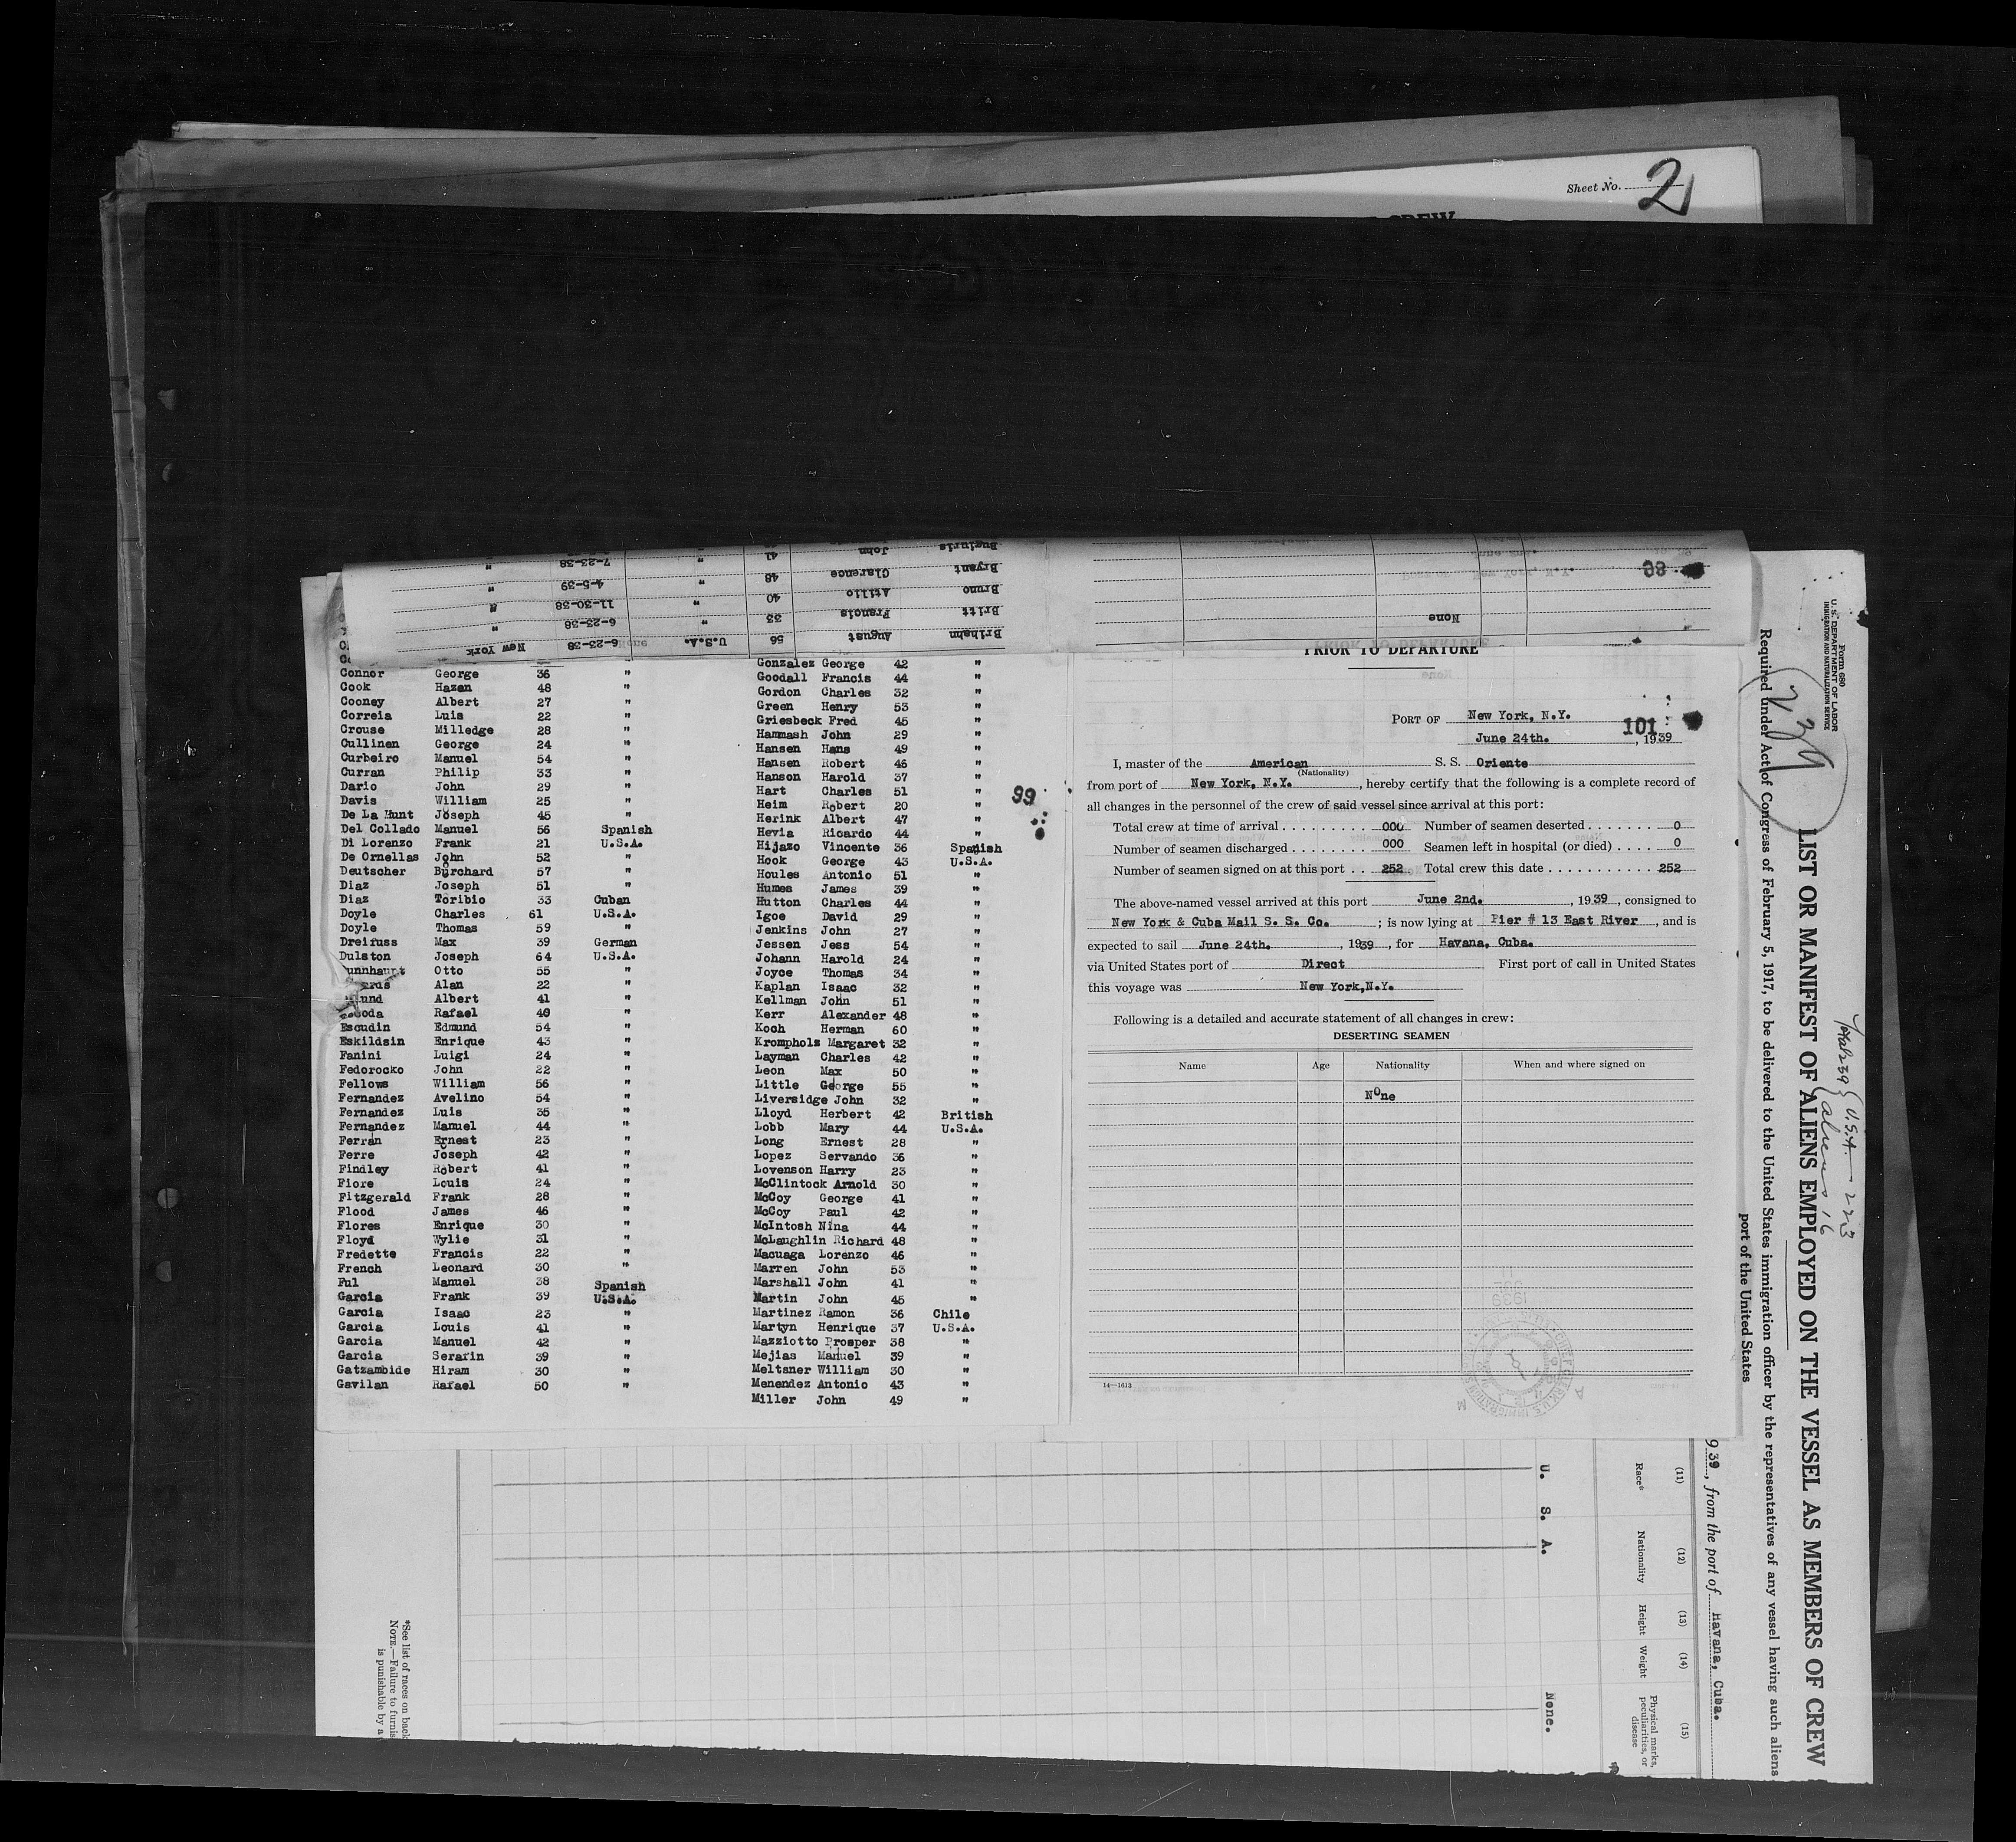 Sheet No. 2
CREW
Bugiuris John 41 " 7-23-38 "
Bryant Clarence 48 " 4-5-39 "
Bruno Atilio 40 11-30-38 "
Britt Francis 33 " 6-23-38 "
Brihahn August 56 U.S.A. 6-23-38 New York
None
99
Connor George 36 "
Cook Hazen 48 "
Cooney Albert 27 "
Correia Luis 22 "
Crouse Milledge 28 "
Cullinen George 24 "
Curbeiro Manuel 54 "
Curran Philip 33 "
Dario John 29 "
Davis William 25 "
De La Hunt Joseph 45 "
Del Collado Manuel 56 Spanish
Di Lorenzo Frank 21 U.S.A.
De Ornellas John 52 "
Deutscher Burchard 57 "
Diaz Joseph 51 "
Diaz Toribio 33 Cuban
Doyle Charles 61 U.S.A.
Doyle Thomas 59 "
Dreifuss Max 39 German
Dulston Joseph 64 U.S.A.
Otto 55 "
Alan 22 "
Albert 41 "
Rafael 40 "
Escudin Edmund 54 "
Eskildsin Enrique 43 "
Fanini Luigi 24 "
Fedorocko John 22 "
Fellows William 56 "
Fernandez Avelino 54 "
Fernandez Luis 35 "
Fernandez Manuel 44 "
Ferran Ernest 23 "
Ferre Joseph 42 "
Findley Robert 41 "
Fiore Louis 24 "
Fitzgerald Frank 28 "
Flood James 46 "
Flores Enrique 30 "
Floyd Wylie 31 "
Fredette Francis 22 "
French Leonard 30 "
Ful Manuel 38 Spanish
Garcia Frank 39 U.S.A.
Garcia Isaac 23 "
Garcia Louis 41 "
Garcia Manuel 42 "
Garcia Serafin 39 "
Gatzambide Hiram 30 "
Gavilan Rafael 50 "
Gonzalez George 42 "
Goodall Francis 44 "
Gordon Charles 32 "
Green Henry 53 "
Griesbeck Fred 45 "
Hammash John 29 "
Hansen Hans 49 "
Hansen Robert 46 "
Hanson Harold 37 "
Hart Charles 51 "
Heim Robert 20 "
Herink Albert 47 "
Hevia Ricardo 44 "
Hijazo Vincente 36 Spanish
Hook George 43 U.S.A.
Houles Antonio 51 "
Humes James 39 "
Hutton Charles 44 "
Igoe David 29 "
Jenkins John 27 "
Jessen Jess 54 "
Johann Harold 24 "
Joyce Thomas 34 "
Kaplan Isaac 32 "
Kellman John 51 "
Kerr Alexander 48 "
Koch Herman 60 "
Krompholz Margaret 32 "
Layman Charles 42 "
Leon Max 50 "
Little George 55 "
Liversidge John 32 "
Lloyd Herbert 42 British
Lobb Mary 44 U.S.A.
Long Ernest 28 "
Lopez Servando 36 "
Lovenson Harry 23 "
McClintock Arnold 30 "
McCoy George 41 "
McCoy Paul 42 "
McIntosh Nina 44 "
McLaughlin Richard 48 "
Macuaga Lorenzo 46 "
Marren John 53 "
Marshall John 41 "
Martin John 45 "
Martinez Ramon 36 Chile
Martyn Henrique 37 U.S.A.
Mazziotto Prosper 38 "
Mejias Manuel 39 "
Meltsner William 30 "
Menendez Antonio 43 "
Miller John 49 "
99
PRIOR TO DEPARTURE
PORT OF New York, N.Y. 101
June 24th. , 1939
I, master of the American S. S. Oriente
(Nationality)
from port of New York, N.Y. , hereby certify that the following is a complete record of
all changes in the personnel of the crew of said vessel since arrival at this port:
Total crew at time of arrival . . . . . . . . . 000 Number of seamen deserted . . . . . . . 0
Number of seamen discharged . . . . . . . . 000 Seamen left in hospital (or died) . . . . 0
Number of seamen signed on at this port . . 252 Total crew this date . . . . . . . . . . . 252
The above-named vessel arrived at this port June 2nd. , 1939 , consigned to
New York & Cuba Mail S. S. Co. ; is now lying at Pier # 13 East River , and is
expected to sail June 24th. , 1939 , for Havana, Cuba.
via United States port of Direct First port of call in United States
this voyage was New York,N.Y.
Following is a detailed and accurate statement of all changes in crew:
DESERTING SEAMEN
Name Age Nationality When and where signed on
None
14—1613
Form 680
U. S. DEPARTMENT OF LABOR
IMMIGRATION AND NATURALIZATION SERVICE
LIST OR MANIFEST OF ALIENS EMPLOYED ON THE VESSEL AS MEMBERS OF CREW
Required under Act of Congress of February 5, 1917, to be delivered to the United States immigration officer by the representatives of any vessel having such aliens
port of the United States
Total 239 { U.S.A. — 223
aliens 16
939 , from the port of Havana, Cuba.
(11) (12) (13) (14) (15)
Race* Nationality Height Weight Physical marks, peculiarities, or disease
U. S. A. None.
*See list of races on back
NOTE.—Failure to furnis
is punishable by a